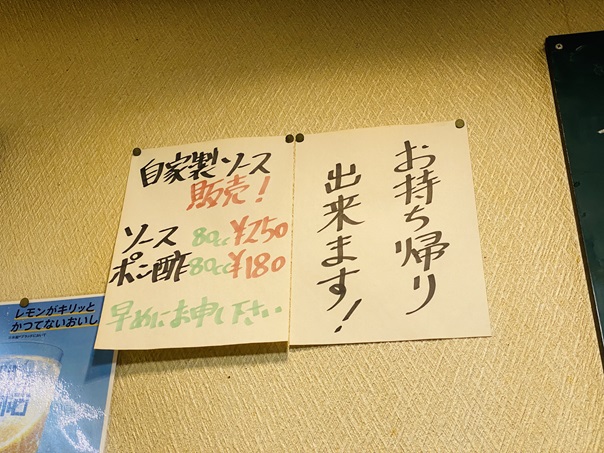 自家製ソース
販売！
ソース 80cc ¥250
ポン酢 80cc ¥180
早めにお申し下さい
お持ち帰り
出来ます！
レモンがキリッと
かつてないおいし